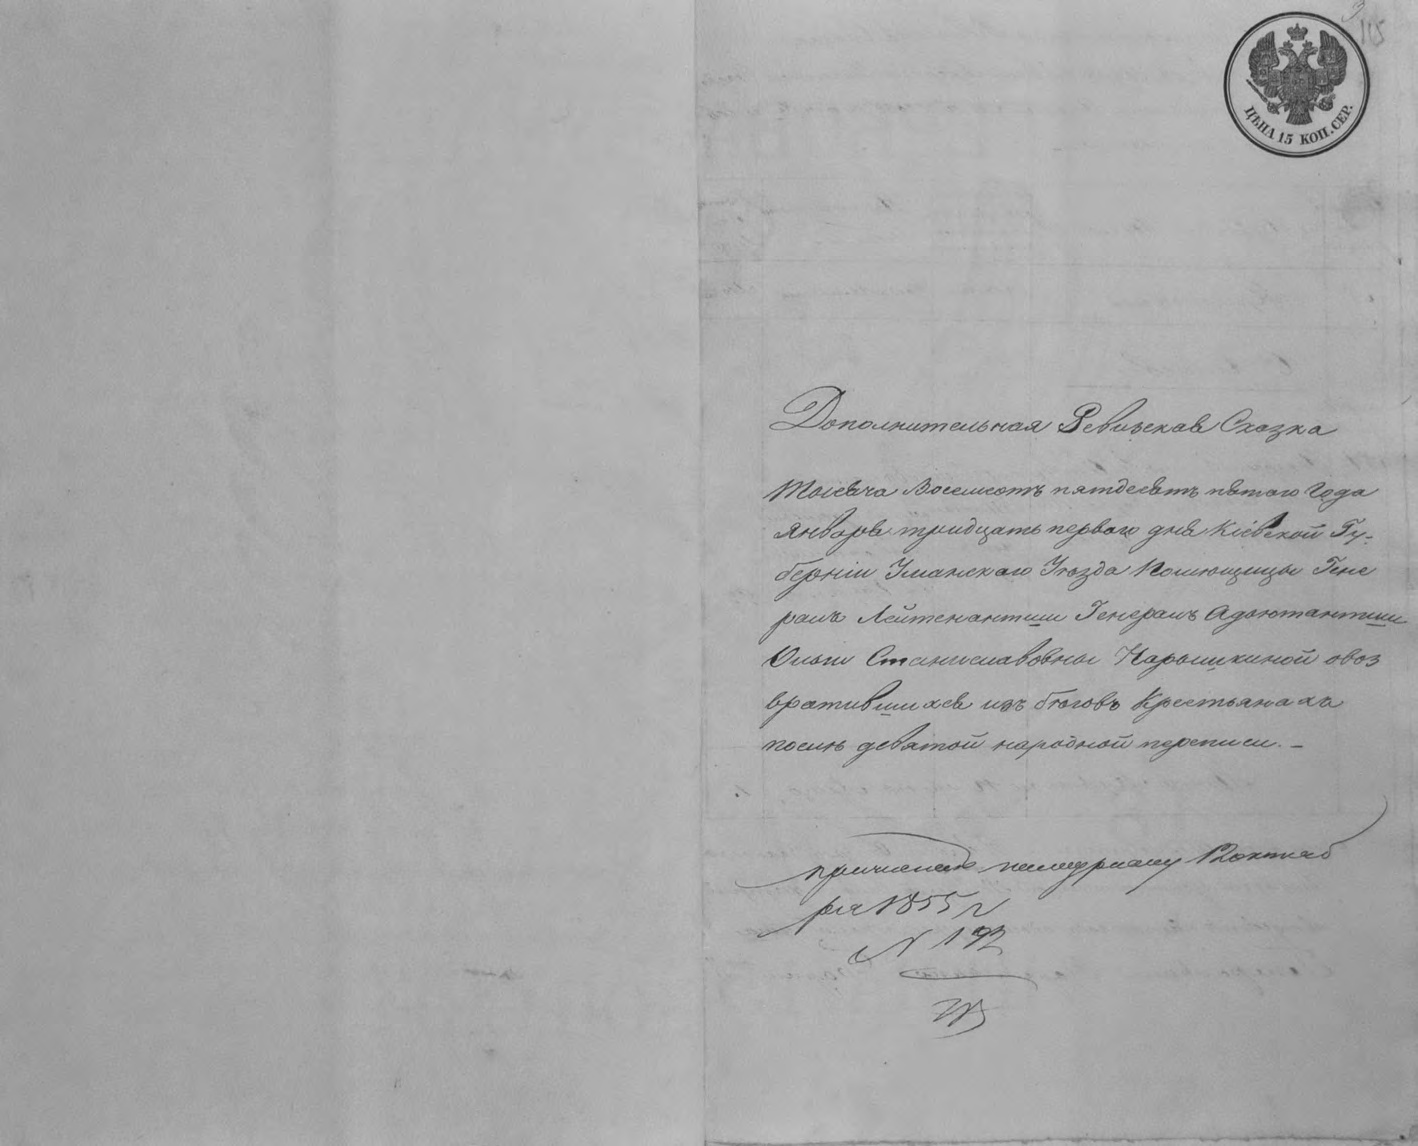 115
ЦѢНА 15 КОП. СЕР.
Дополнительная Ревизская Сказка
Тысяча Восемсотъ пятдесятъ пятаго Года
Января тридцать перваго дня Кіевской Гу-
берніи Уманскаго Уѣзда Помѣщицы Гене
ралъ Лейтенантши Генералъ Адъютантши
Ольги Станиславовны Нарышкиной овоз
вратившихся изъ бѣговъ Крестьянахъ
послѣ девятой народной переписи. –
октяб
ря 1855 г
N 192